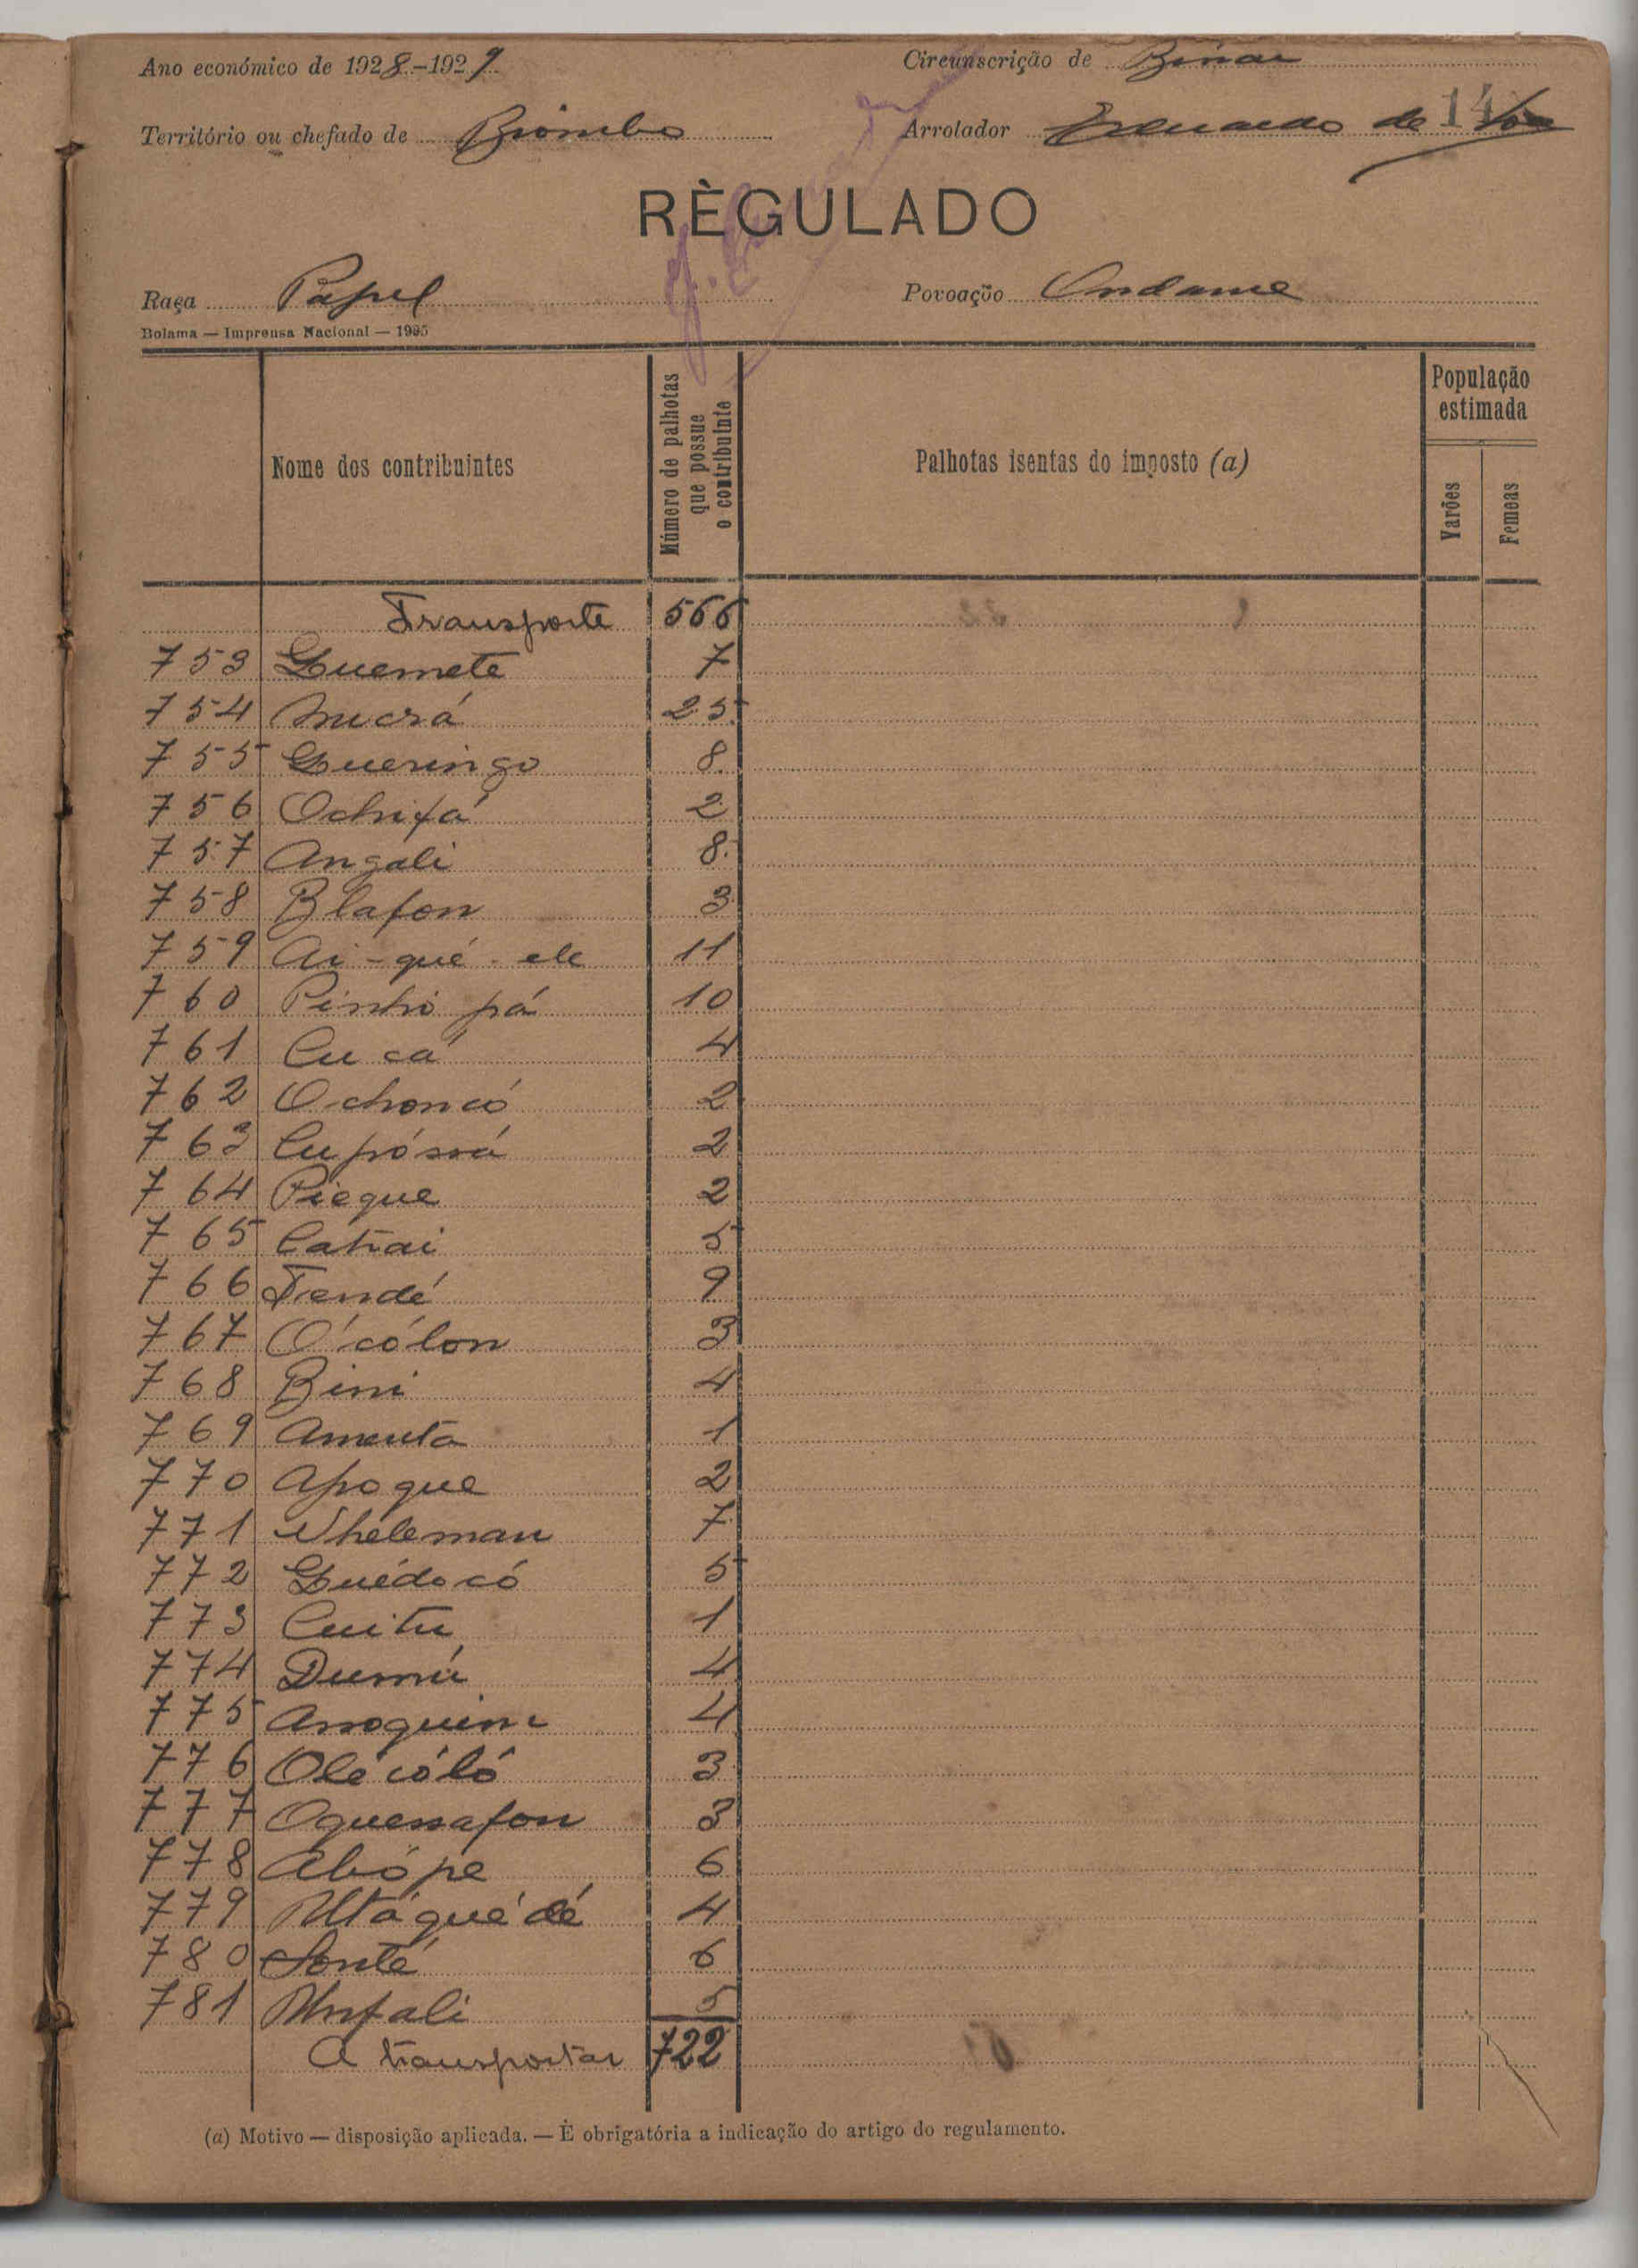 Ano económico de 1928-1929 Circunscrição de
14
Território ou chefado de Biombo Arrolador de
RÈGULADO
Raça Papel Povoação Ondame
Bolama — Imprensa Nacional — 1925
Nome dos contribuintes Número de palhotas que possue o contribuinte Palhotas isentas do imposto (a) População estimada Varões Femeas
Transporte 566
753 Guemete 7
754 25
755 Gueringo 8
756 Ochifá 2
757 Angali 8
758 Blafon 3
759 Ai-qué-ele 11
760 Pinhi pá 10
761 Cu cá 4
762 Ochoncó 2
763 Cupóssá 2
764 Pieque 2
765 Catrai 5
766 Tendé 9
767 O'cólon 3
768 Bini 4
769 Amenta 1
770 Apoque 2
771 Nheleman 7
772 Guédocó 5
773 Cuitu 1
774 Dumú 4
775 4
776 Olécóló 3
777 Oquessafon 3
778 Abópe 6
779 4
780 Sonté 6
781 5
A transportar 722
(a) Motivo — disposição aplicada. — É obrigatória a indicação do artigo do regulamento.